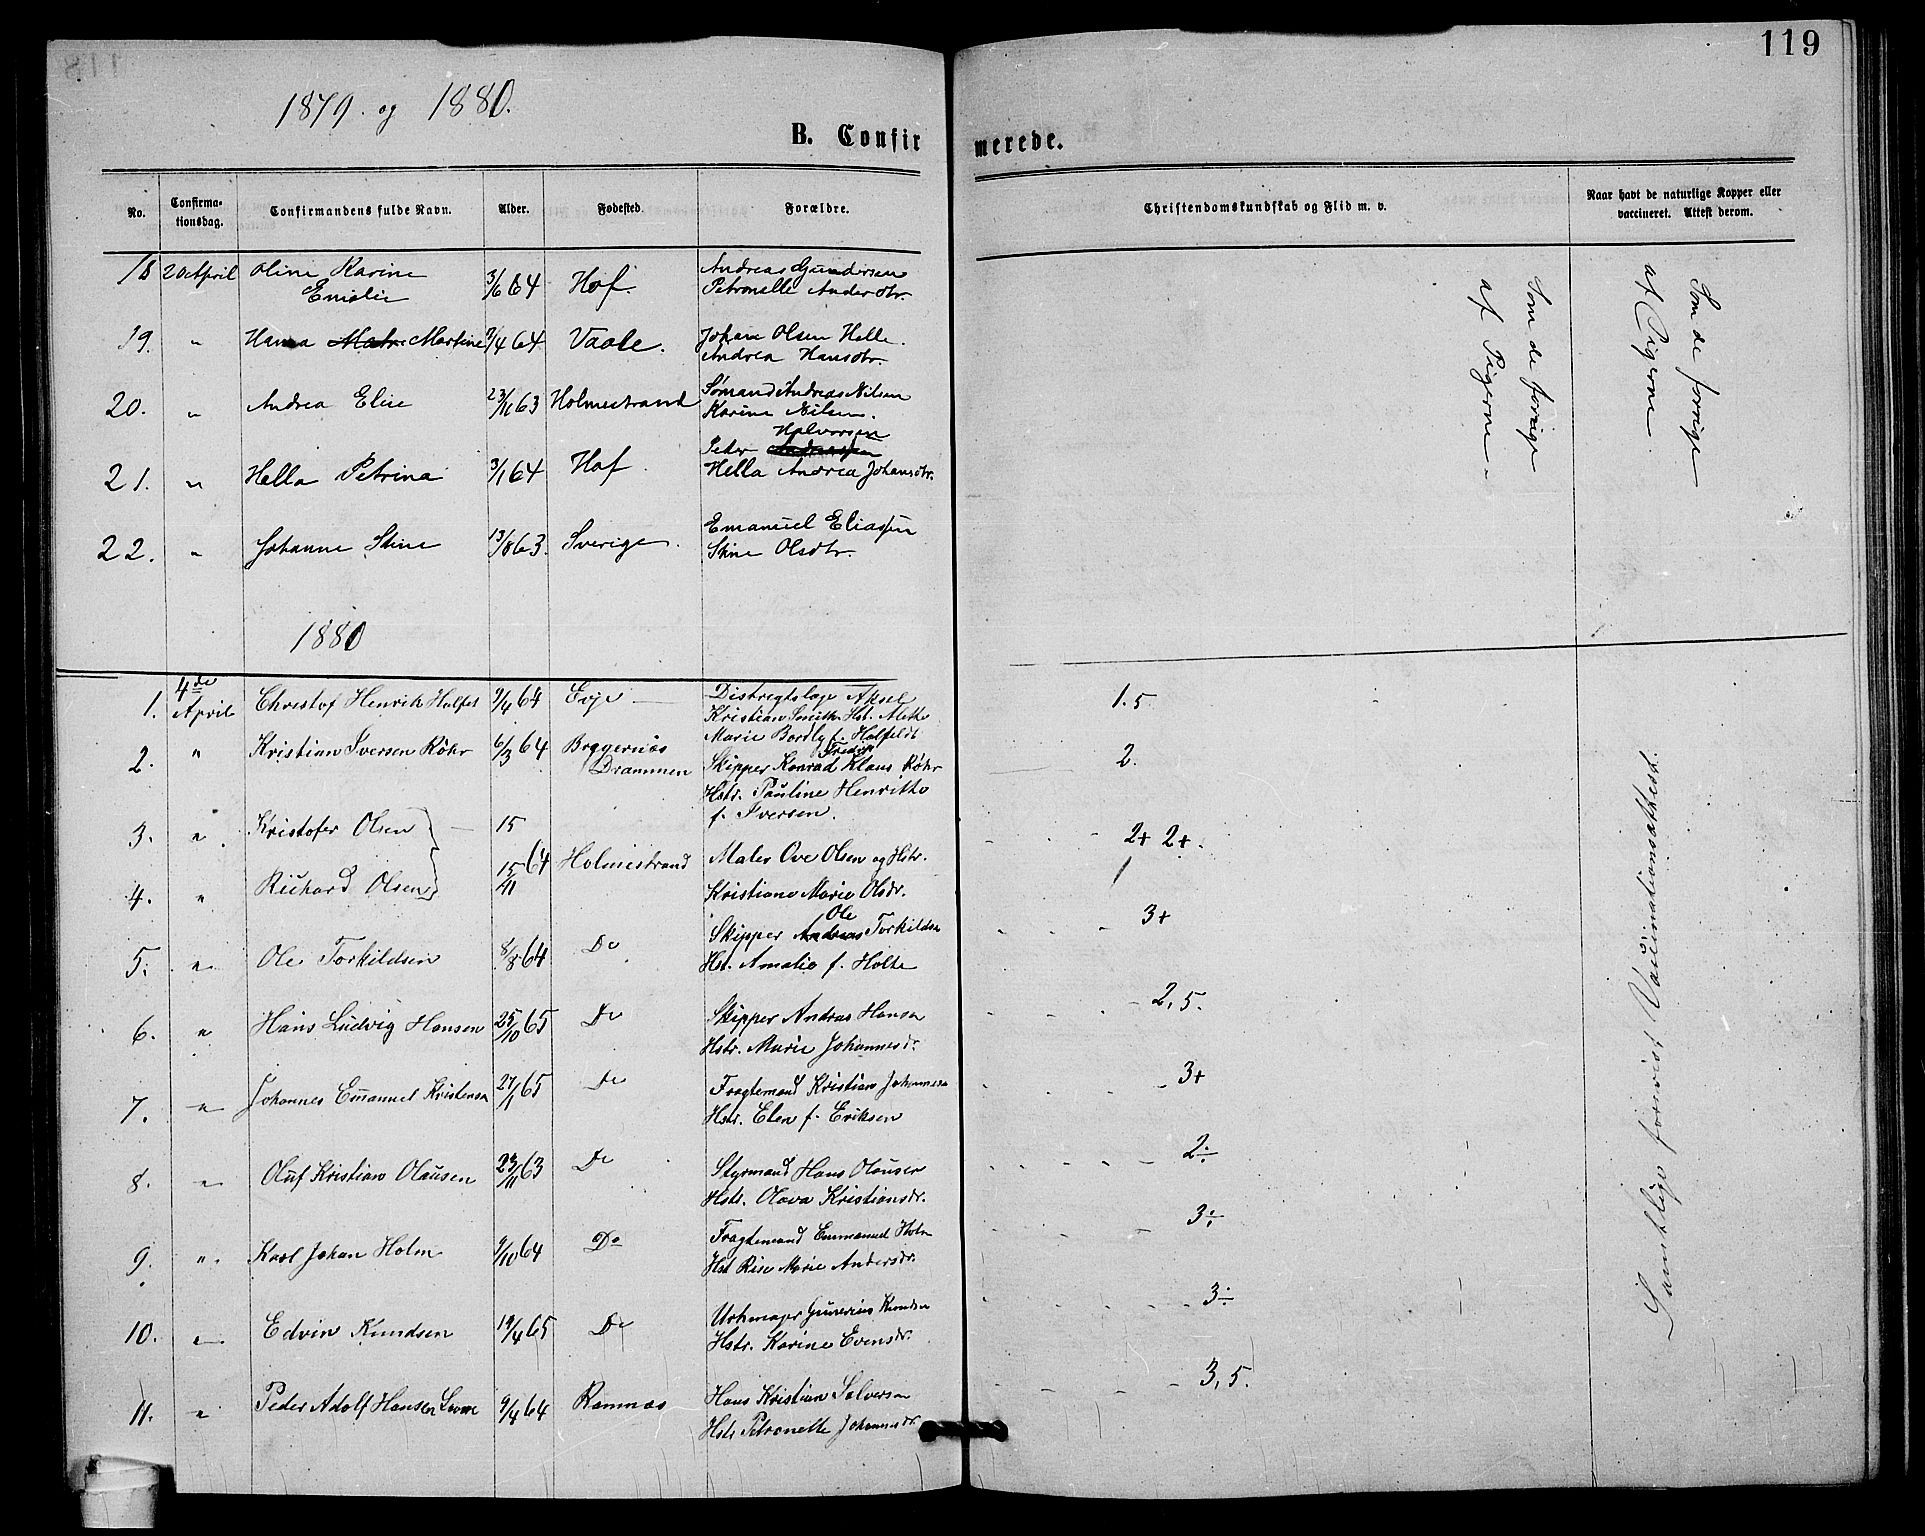 119
1879. og 1880.
B. Confirmerede.
No.
Confirmationsdag.
Confirmandens fulde Navn.
Alder.
Fødested.
Forældre.
Christendomskundskab og Flid m. v.
Naar havt de naturlige Kopper eller vaccineret. Attest derom.
18 20 April Oline Karine Emilie 3/6 64 Hof. Andreas Gundersen
Petronelle Andersdtr.
Som de forrige af Pigerne
Som de forrige af Pigerne
19. " Hanna Martine 7/4 64 Vaale. Johan Olsen Helle.
Andrea Hansdtr.
20. " Andrea Elise 23/11 63 Holmestrand Sømand Andreas Nilsen
Karine Nilsen.
21. " Hella Petrina 3/1 64 Hof. Peder Halvorsen
Hella Andrea Johansdtr.
22. " Johanne Stine 13/8 63. Sverige. Emanuel Eliassen
Stine Olsdtr.
1880
1. 4de April Christof Henrik 9/4 64 Eoje Distrigtslæge Aksel
Kristian Smith Hst. Alette
Marie Bordly f. Halfeldt
1.5
2. " Kristian Iversen Röhr 6/3 64 Bragernæs Drammen Skipper Konrad Fredrik Klaus Röhr
Hstr. Pauline Henritte
f. Iversen.
2.
3. " Kristofer Olsen 15
4. " Richard Olsen 15/11 64 Holmestrand Maler Ove Olsen og Hstr.
Kristiane Marie Olsdr.
2+ 2+.
5. " Ole Torkildsen 8/8 64 Do Skipper Ole Torkildsen
Hst. Amalie f. Holte
3+
6. " Hans Ludvig Hansen 25/10 65 Do Skipper Andras Hansen
Hstr. Marie Johannesdr.
2,5.
7. " Johannes Emanuel Kristensen 27/1 65 Do Fragtemand Kristian Johannesen
Hstr. Elen f. Eriksen
3+
8. " Oluf Kristian Olausen 23/11 63 Do Styrmand Hans Olausen
Hstr. Olava Kristiansdr.
2÷
9. " Karl Johan Holm 9/10 64 Do Fragtemand Emmanuel Holm
Hst Rise Marie Andersdr.
3÷
10. " Edvin Knudsen 19/4 65 Do Urhmager Gunerius Knudsen
Hstr. Karine Evensdr.
3÷
11. " Peder Adolf Hansen 9/4 64 Ramnæs Hans Kristian Solversen
Hstr Petronette Johannesdr.
3,5.
Samtlige forevist Vaccinationsattest.